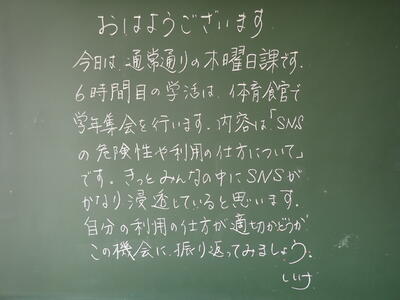 おはようございます
今日は、通常通りの木曜日課です。
6時間目の学活は、体育館で
学年集会を行います。内容は「SNS
の危険性や利用の仕方について」
です。きっとみんなの中にSNSが
かなり浸透していると思います。
自分の利用の仕方が適切かどうか
この機会に、振り返ってみましょう。